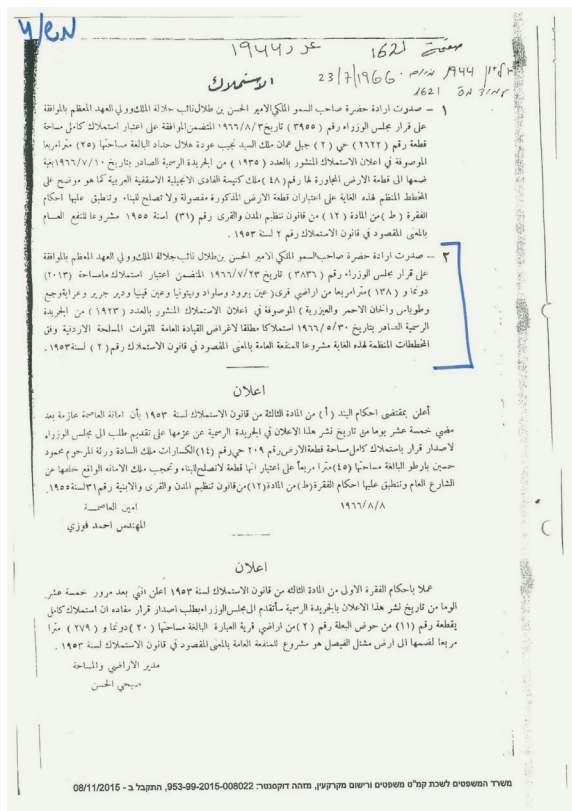 מש/4
صفحة 1621
عدد 1944
23/7/1966
1621
الاستملاك
١ – صدرت ارادة حضرة صاحب السمو الملكي الامير الحسن بن طلال نائب جلالة الملك وولي العهد المعظم بالموافقة
على قرار مجلس الوزراء رقم (٣٩٥٥) تاريخ ١٩٦٦/٨/٣ المتضمن الموافقة على اعتبار استملاك كامل مساحة
قطعة رقم (٢٦٢٢) حي (٢) جبل عمان ملك السيد نجيب عودة هلال حداد البالغة مساحتها (٢٥) مترا مربعا
الموصوفة في اعلان الاستملاك المنشور بالعدد (١٩٣٥) من الجريدة الرسمية الصادر بتاريخ ١٩٦٦/٧/١٠ بغية
ضمها الى قطعة الارض المجاورة لها رقم (٤٨) ملك كنيسة الفادي الانجيلية الاسقفية العربية كما هو موضح على
المخطط المنظم لهذه الغاية على اعتبار ان قطعة الارض المذكورة مفصولة ولا تصلح للبناء وتنطبق عليها احكام
الفقرة (ط) من المادة (١٢) من قانون تنظيم المدن والقرى رقم (٣١) لسنة ١٩٥٥ مشروعا للنفع العام
بالمعنى المقصود في قانون الاستملاك رقم ٢ لسنة ١٩٥٣ .
٢ – صدرت ارادة حضرة صاحب السمو الملكي الامير الحسن بن طلال نائب جلالة الملك وولي العهد المعظم بالموافقة
على قرار مجلس الوزراء رقم (٣٨٣٦) تاريخ ١٩٦٦/٧/٢٣ المتضمن اعتبار استملاك ما مساحة (٢٠١٣)
دونما و (١٣٨) مترا مربعا من اراضي قرى (عين يبرود وسلواد وبيتونيا وعين قينيا ودير جرير وعرابة وجبع
وطوباس والخان الاحمر والعيزرية) الموصوفة في اعلان الاستملاك المنشور بالعدد (١٩٢٣) من الجريدة
الرسمية الصادر بتاريخ ١٩٦٦/٥/٣٠ استملاكا مطلقا لاغراض القيادة العامة للقوات المسلحة الاردنية وفق
المخططات المنظمة لهذه الغاية مشروعا للمنفعة العامة بالمعنى المقصود في قانون الاستملاك رقم (٢) لسنة ١٩٥٣.
اعلان
أعلن بمقتضى احكام البند (أ) من المادة الثالثة من قانون الاستملاك لسنة ١٩٥٣ بأن امانة العاصمة عازمة بعد
مضي خمسة عشر يوما من تاريخ نشر هذا الاعلان في الجريدة الرسمية عن عزمها على تقديم طلب الى مجلس الوزراء
لاصدار قرار باستملاك كامل مساحة قطعة الارض رقم ٢٠٩ حي رقم (١٤) الكسارات ملك السادة ورثة المرحوم محمود
حسين بارطو البالغة مساحتها (٤٥) مترا مربعاً على اعتبار انها قطعة لا تصلح للبناء وتحجب ملك الامانه الواقع خلفها عن
الشارع العام وتنطبق عليها احكام الفقرة (ط) من المادة (١٢) من قانون تنظيم المدن والقرى والابنية رقم ٣١ لسنة ١٩٥٥.
١٩٦٦/٨/٨ امين العاصمة
المهندس احمد فوزي
اعلان
عملا باحكام الفقرة الاولى من المادة الثالثه من قانون الاستملاك لسنة ١٩٥٣ اعلن انني بعد مرور خمسة عشر
يوما من تاريخ نشر هذا الاعلان بالجريدة الرسمية سأتقدم الى مجلس الوزراء بطلب اصدار قرار مفاده ان استملاك كامل
قطعة رقم (١١) من حوض البعلة رقم (٢) من اراضي قرية العبارة البالغة مساحتها (٢٠) دونما و (٢٧٩) مترا
مربعا لضمها الى ارض مشتل الفيصل هو مشروع للمنفعة العامة بالمعنى المقصود في قانون الاستملاك لسنة ١٩٥٣ .
مدير الاراضي والمساحة
صبحي الحسن
משרד המשפטים לשכת קמ"ט משפטים ורישום מקרקעין, מזהה דוקסנטר: 953-99-2015-008022, התקבל ב - 08/11/2015